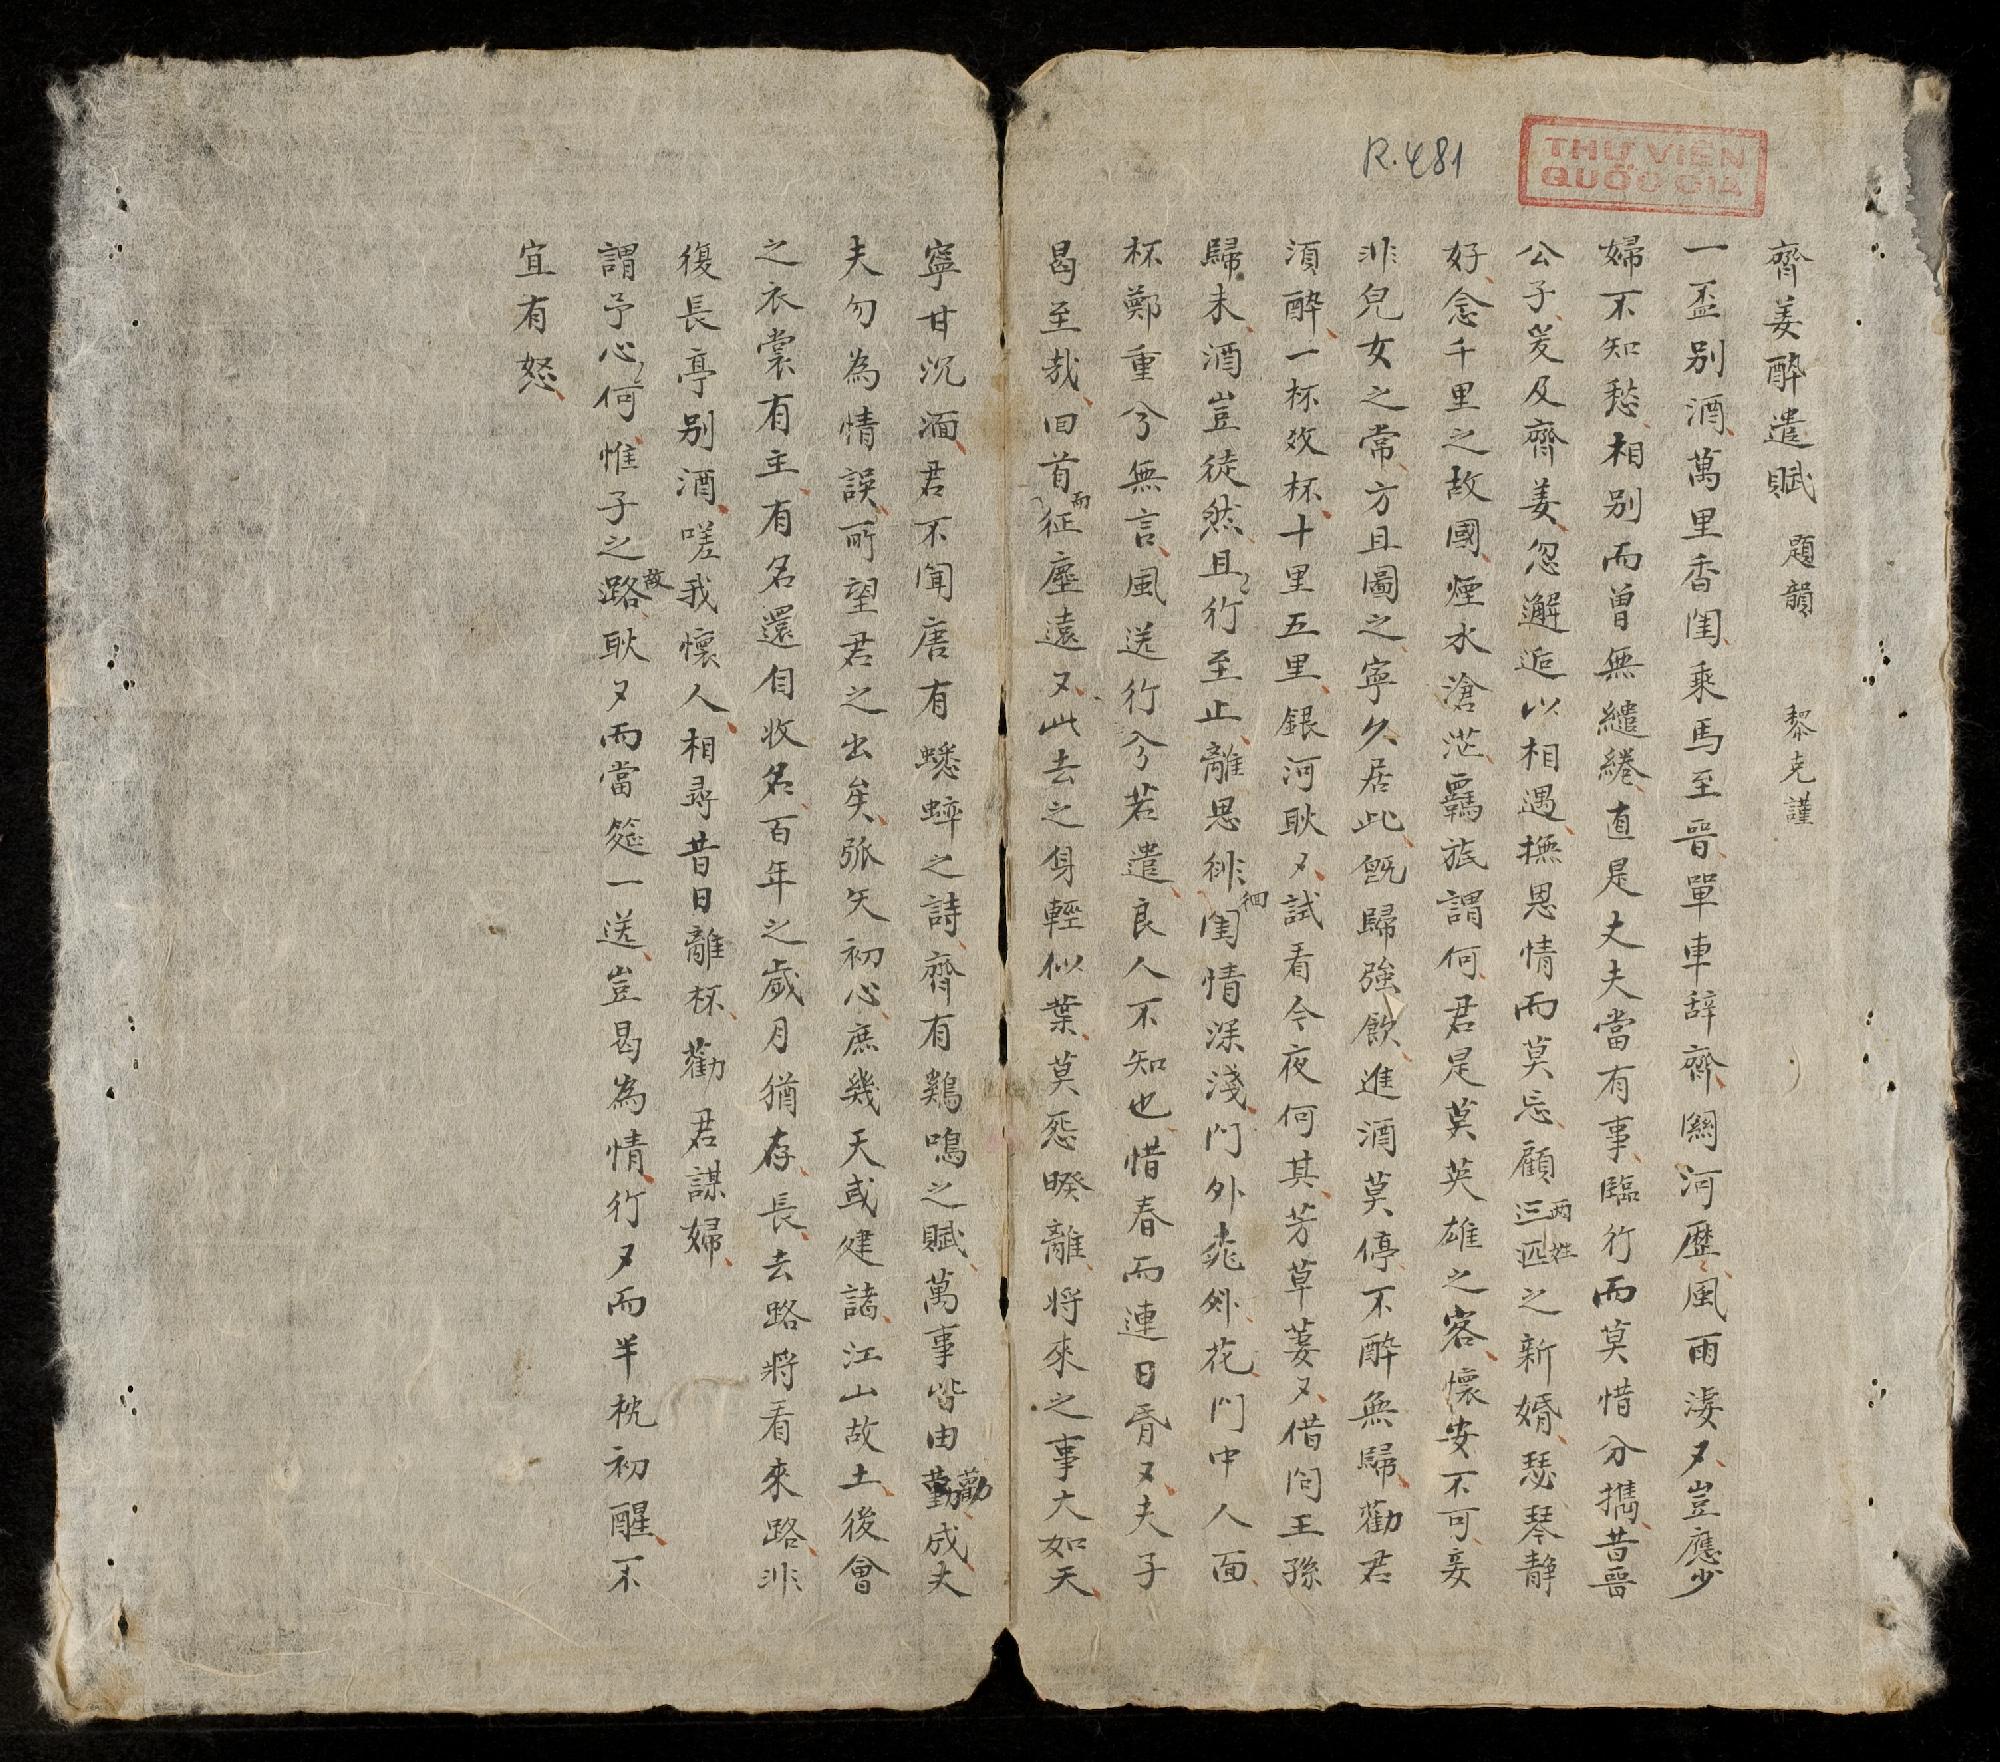 R.481
THƯ VIỆN
QUỐC GIA
齊姜醉遣賦 題韻 黎克謹
一盃別酒萬里香閨乘馬至晉單車辞齊關河歷風雨淒〻豈應少
婦不知愁相別而曾無繾綣直是丈夫當有事臨行而莫惜分擕昔晉
公子爰及齊姜忽邂逅以相遇撫恩情而莫忘顧三兩匹姓之新婚瑟琴静
好念千里之故國煙水滄茫羈旅謂何君是莫英雄之客懷安不可妾
非兒女之常方且圖之寧久居此旣歸強飲進酒莫停不醉無歸勸君
須醉一杯效杯十里五里銀河耿〻試看今夜何其芳草萋〻借问王孫
歸未酒豈徒然且行至止離思徘徊閨情深淺门外花门中人面
杯鄭重兮無言風送行兮若遣良人不知也惜春而連日昏〻夫子
曷至哉回首而征塵遠〻此去之身輕似葉莫怨暌離將來之事大如天
寧甘沉湎君不闻唐有蟋蟀之詩齊有鷄鳴之賦萬事皆由勸成丈
夫勿為情誤所望君之出矣弧矢初心庶幾天或建諸江山故土後會
之衣裳有主有名還自收名百年之歲月猶存長去路將看來路非
復長亭別酒嗟我懷人相尋昔日離杯勸君謀婦
謂予心何惟子之路故耿〻而當筵一送豈曷為情行〻而半枕初醒不
宜有怒